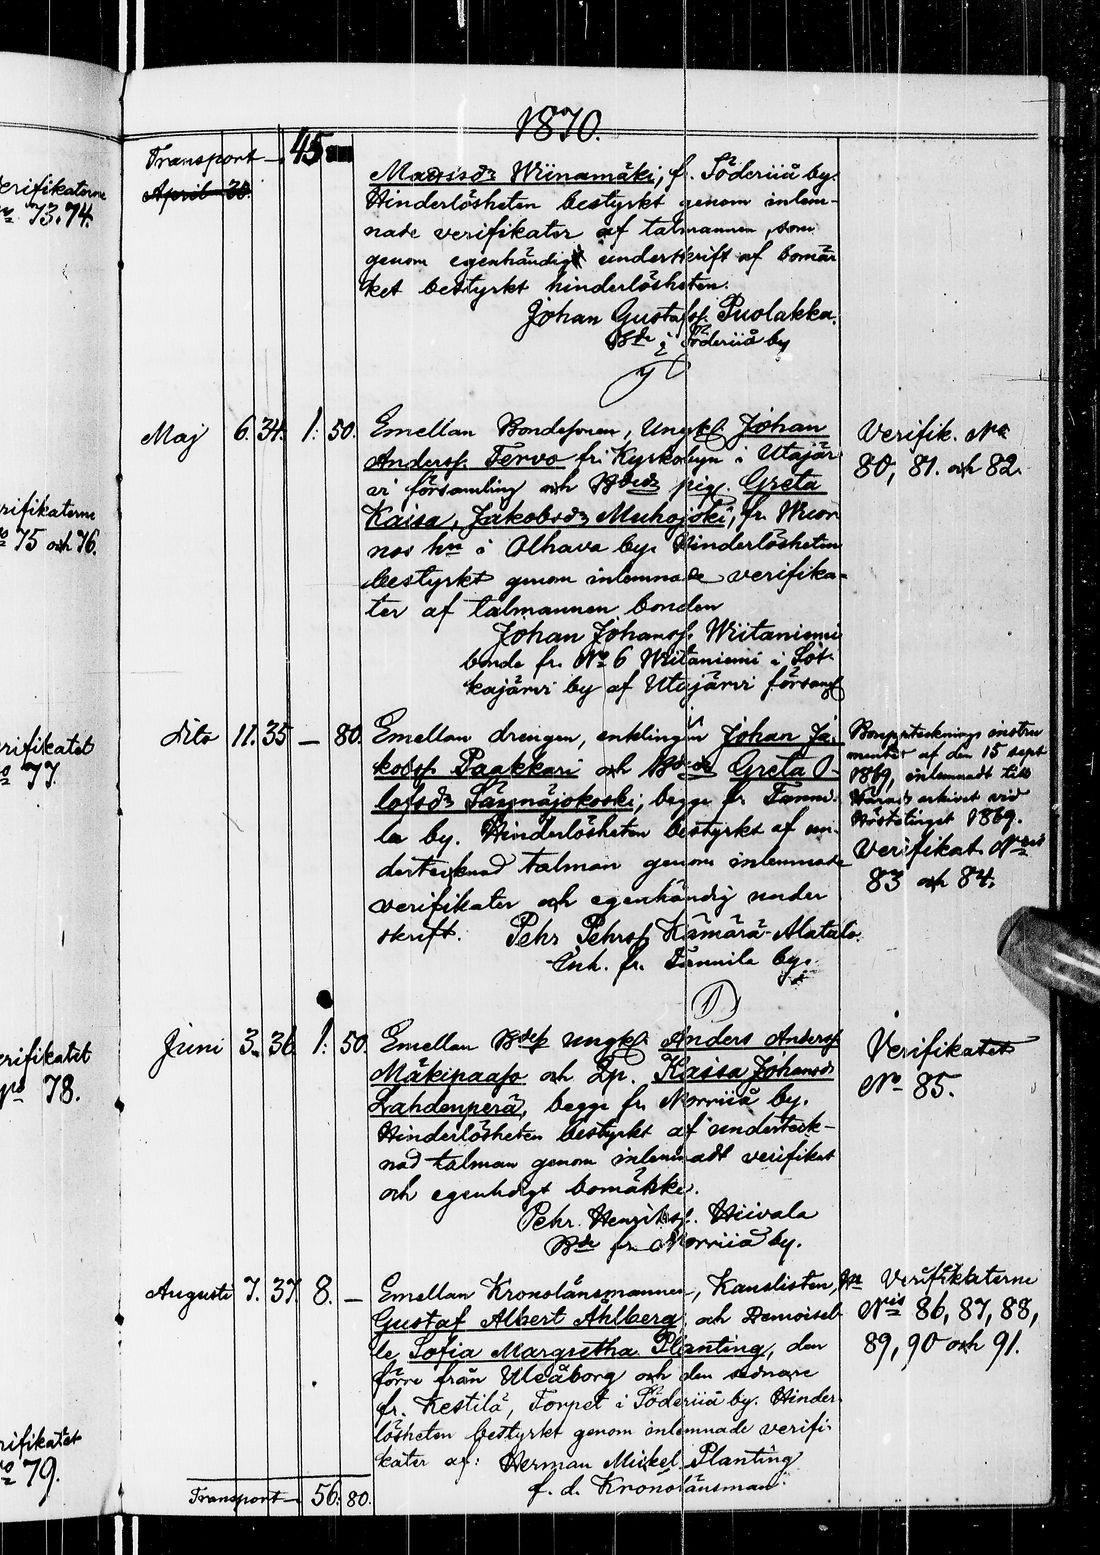 1870.
Transport — 45
April 30.
Matsdr Wiinamäki, fr. Söderiiå by.
Hinderlösheten bestyrkt genom inlem-
nade verifikater af talmannen, som
genom egenhändigt underskrift af bomär
ket bestyrkt hinderlösheten.
Johan Gustafss. Puolakka.
Bde i Söderiiå by
Maj 6. 34. 1: 50. Emellan Bondesonen, Ungkl. Johan
Anderss. Tervo fr. Kyrkobyn i Utajär
vi församling och Bdedr pig. Greta
Kaisa, Jakobsdr Muhojoki, fr.
nos hn i Olhava by. Hinderlösheten
bestyrkt genom inlemnade verifika-
ter af talmannen bonden
Johan Johanss. Wiitaniemi
bonde fr. No 6 Wiitaniemi i Sot-
kajärvi by af Utajärvi församl
Verifik. No
80, 81. och 82.
Dito 11. 35 — 80. Emellan drengen, enklingen Johan Ja-
kobss. Paakkari och Bdedr Greta O-
lofsdr Säynäjokoski, begge fr. Tanni-
la by. Hinderlösheten bestyrkt af un-
dertecknad talman genom inlemnade
verifikater och egenhändig under
skrift. Pehr Pehrss. Kämärä-Alatalo.
Inh. fr. Tannila by.
Bouppteckningsinstru
mentet af den 15 sept
1869, inlemnadt till
Härads arkivet vid
Hösttinget 1869.
Verifikat Nris
83 och 84.
Juni 3. 36. 1: 50. Emellan Bdes Ungkl. Anders Anderss.
Mäkipaaso och Bp. Kaisa Johansdr
Lahdenperä, begge fr. Norriiå by.
Hinderlösheten bestyrkt af underteck-
nad talman genom inlemnadt verifikat
och egenhdgt bomärke.
Pehr Henrikss. Hiivala
Bde fr. Norriiå by.
Verifikatet
No 85.
Augusti 7. 37. 8. — Emellan Kronolänsmannen, Kanslisten, Hr
Gustaf Albert Åhlberg och Demoisel-
le Sofia Margretha Planting, den
förre från Uleåborg och den sednare
fr. Kestilä, Torpet i Söderiiå by. Hinder-
lösheten bestyrkt genom inlemnade verifi-
kater af: Herman Mickel Planting
f. d. Kronolänsman.
Verifikaterne
Nris 86, 87, 88,
89, 90 och 91.
Transport — 56: 80.
verifikaterne
No 73. 74.
verifikaterne
No 75 och 76.
verifikatet
No 77.
verifikatet
No 78.
verifikatet
No 79.